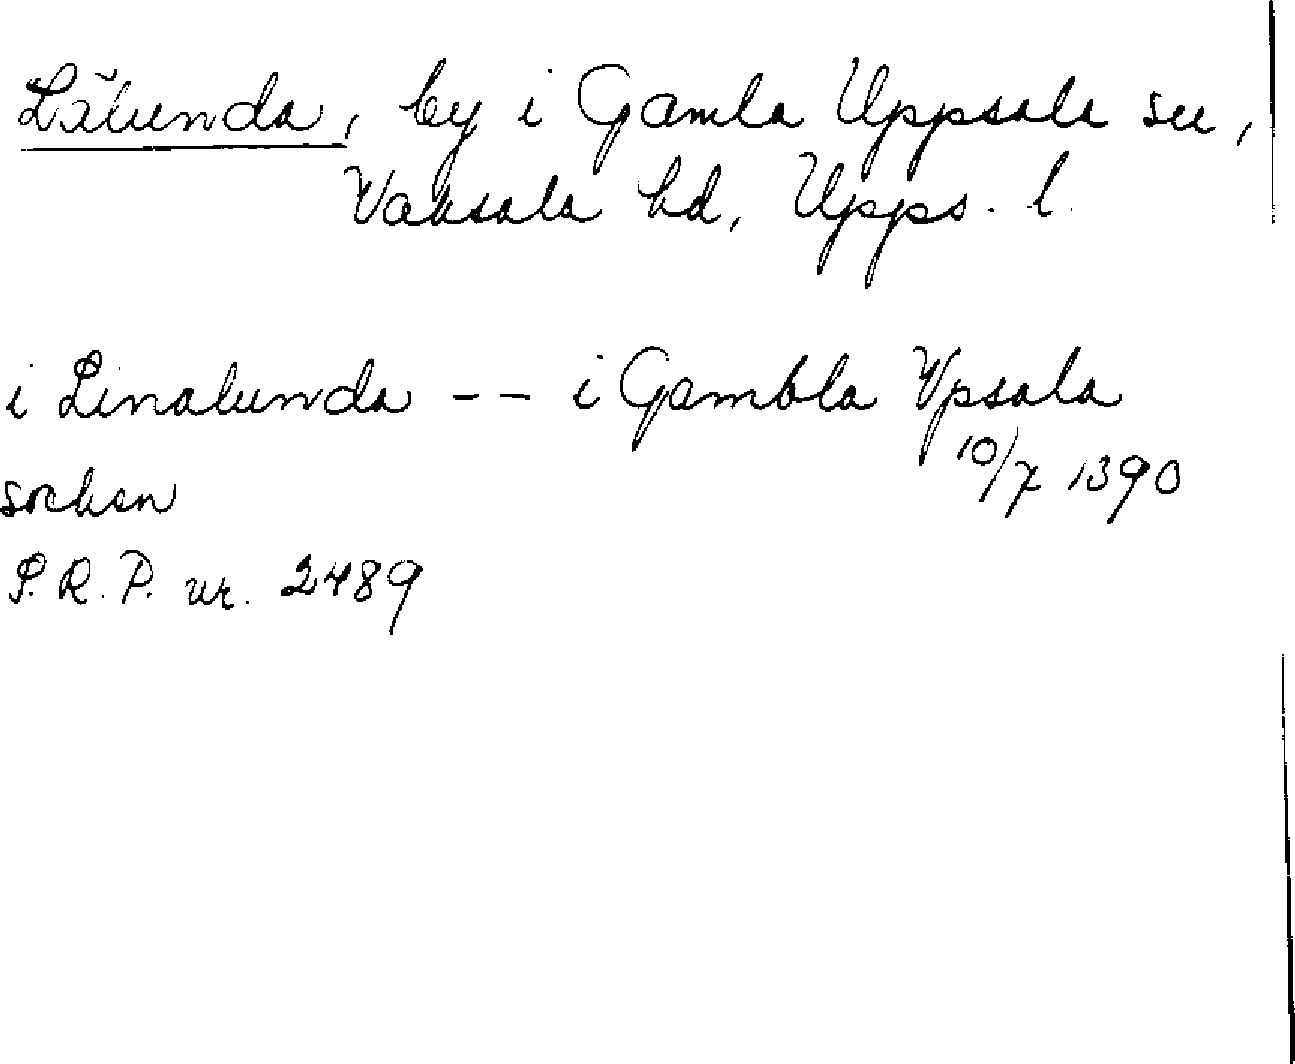 Lälunda, by i Gamla Uppsala sn,
Vaksala hd, Upps. l.
i Linalunda -- i Gambla Vpsala
socken 10/7 1390
P.R.P. nr. 2489